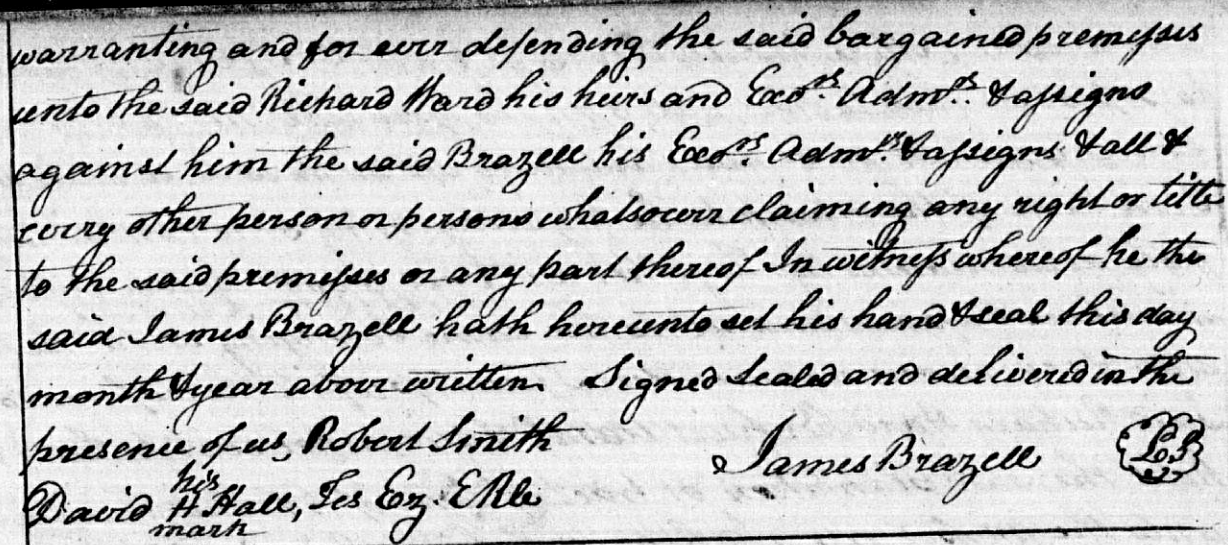 warranting and for ever defending the said bargained premisses
unto the said Richard Ward his heirs and Exors. Admrs. & assigns
against him the said Brazell his Exors. Admrs. & assigns & all &
every other person or persons whatsoever claiming any right or title
to the said premisses or any part thereof In witness whereof he the
said James Brazell hath hereunto set his hand & seal this day
month & year above written. Signed Sealed and delivered in the
presence of us, Robert Smith
James Brazell LS
his
David H Hall, Tes Ez.
mark